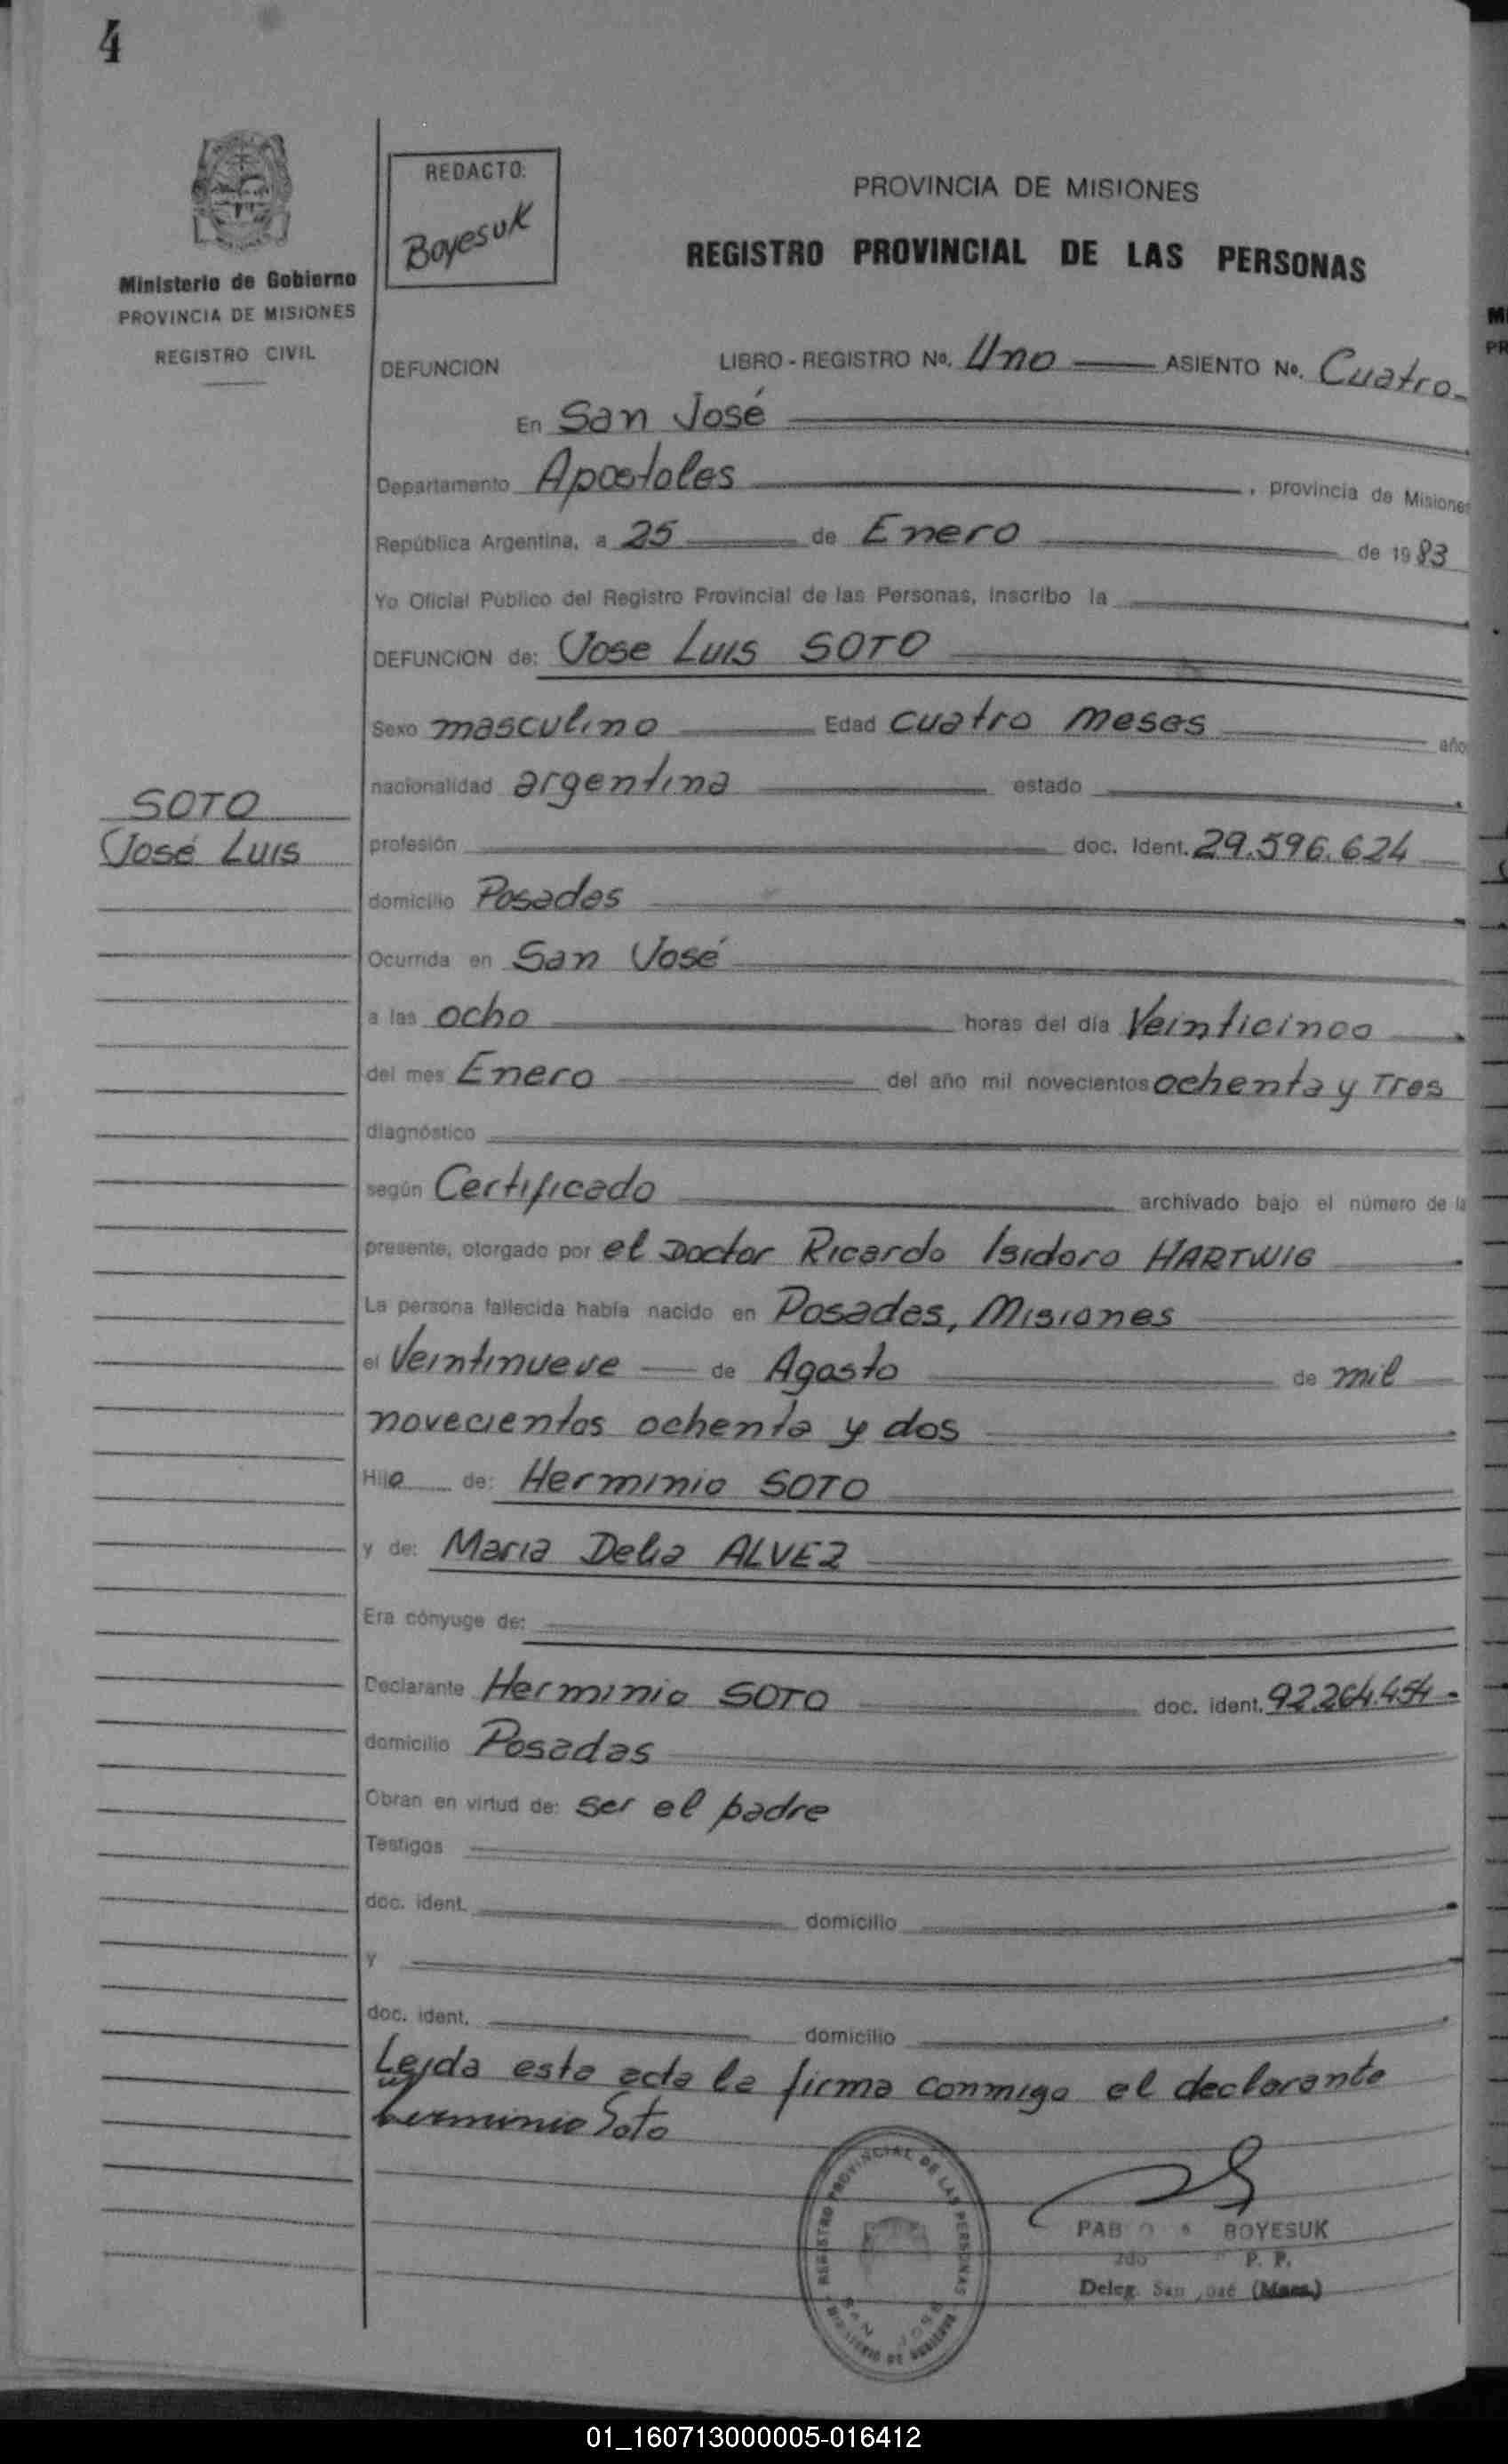 4
REDACTO:
Boyesuk
Ministerio de Gobierno
PROVINCIA DE MISIONES
REGISTRO CIVIL
PROVINCIA DE MISIONES
REGISTRO PROVINCIAL DE LAS PERSONAS
DEFUNCION LIBRO - REGISTRO Nº. Uno ASIENTO Nº. Cuatro
En San José
Departamento Apostoles, provincia de Misiones
República Argentina, a 25 de Enero de 1983
Yo Oficial Público del Registro Provincial de las Personas, inscribo la
DEFUNCION de: Jose Luis SOTO
Sexo masculino Edad cuatro meses año
nacionalidad argentina estado
SOTO
José Luis
profesión doc. Ident. 29.596.624
domicilio Posadas
Ocurrida en San José
a las ocho horas del día Veinticinco
del mes Enero del año mil novecientos ochenta y Tres
diagnóstico
según Certificado archivado bajo el número de la
presente, otorgado por el Doctor Ricardo Isidoro HARTWIG
La persona fallecida había nacido en Posadas, Misiones
el Veintinueve de Agosto de mil
novecientos ochenta y dos
Hijo de: Herminio SOTO
y de: Maria Delia ALVEZ
Era cónyuge de:
Declarante Herminio SOTO doc. ident. 92.264.454
domicilio Posadas
Obran en virtud de: ser el padre
Testigos
doc. ident. domicilio
y
doc. ident. domicilio
Leida esta acta la firma conmigo el declarante
herminio Soto
REGISTRO PROVINCIAL DE LAS PERSONAS
SAN JOSE
MINISTERIO DE GOBIERNO
BOYESUK
P. P.
Deleg. San José (Mnes.)
01_160713000005-016412